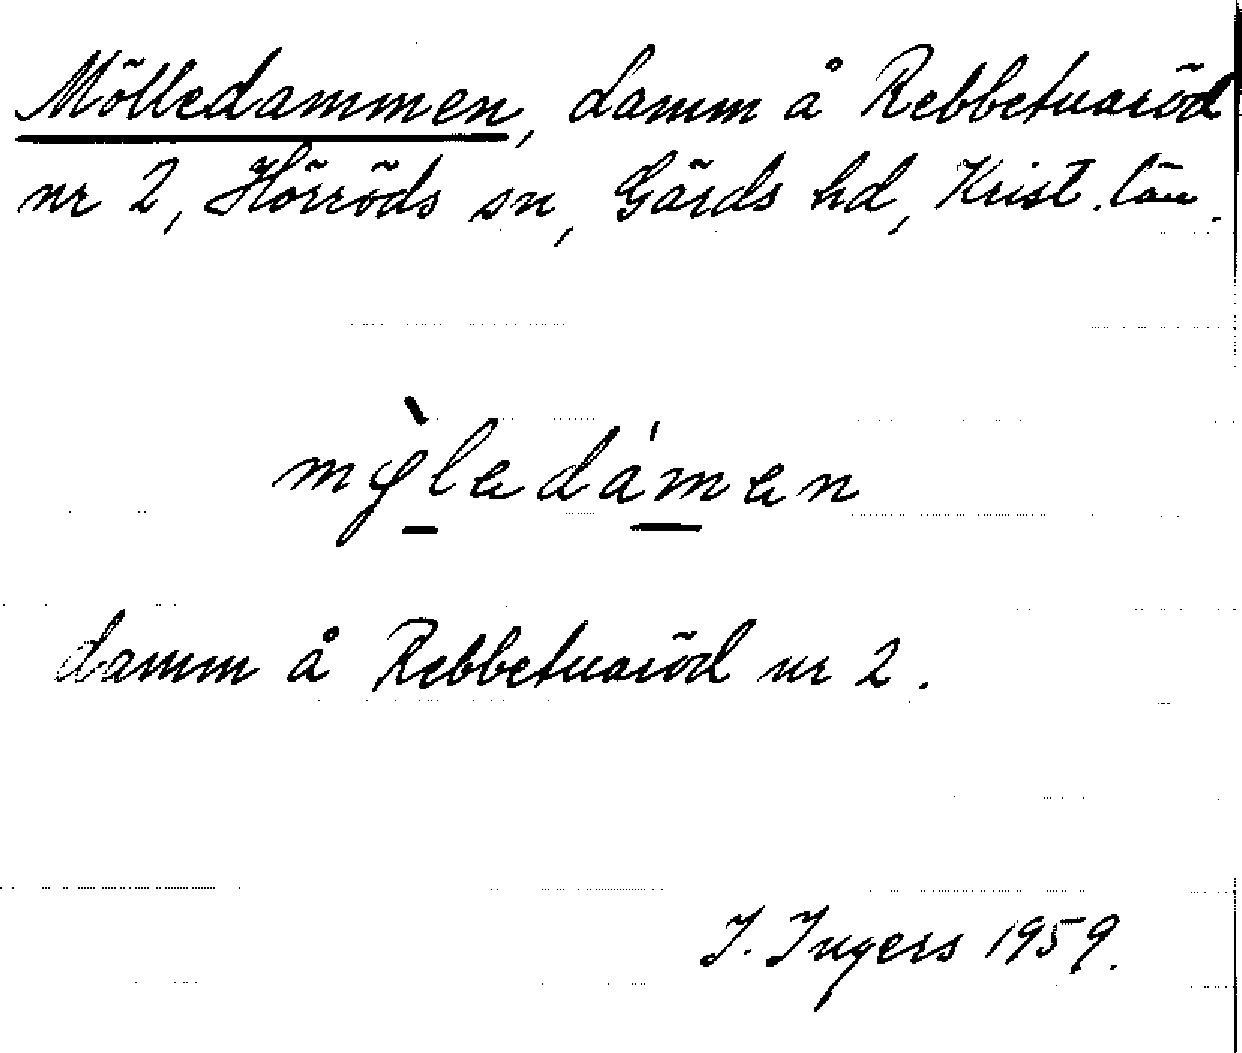 Mölledammen, damm å Rebbetuaröd
nr 2, Hörröds sn, Gärds hd, Krist. län.
mø̀ledámən
damm å Rebbetuaröd nr 2.
I. Ingers 1959.